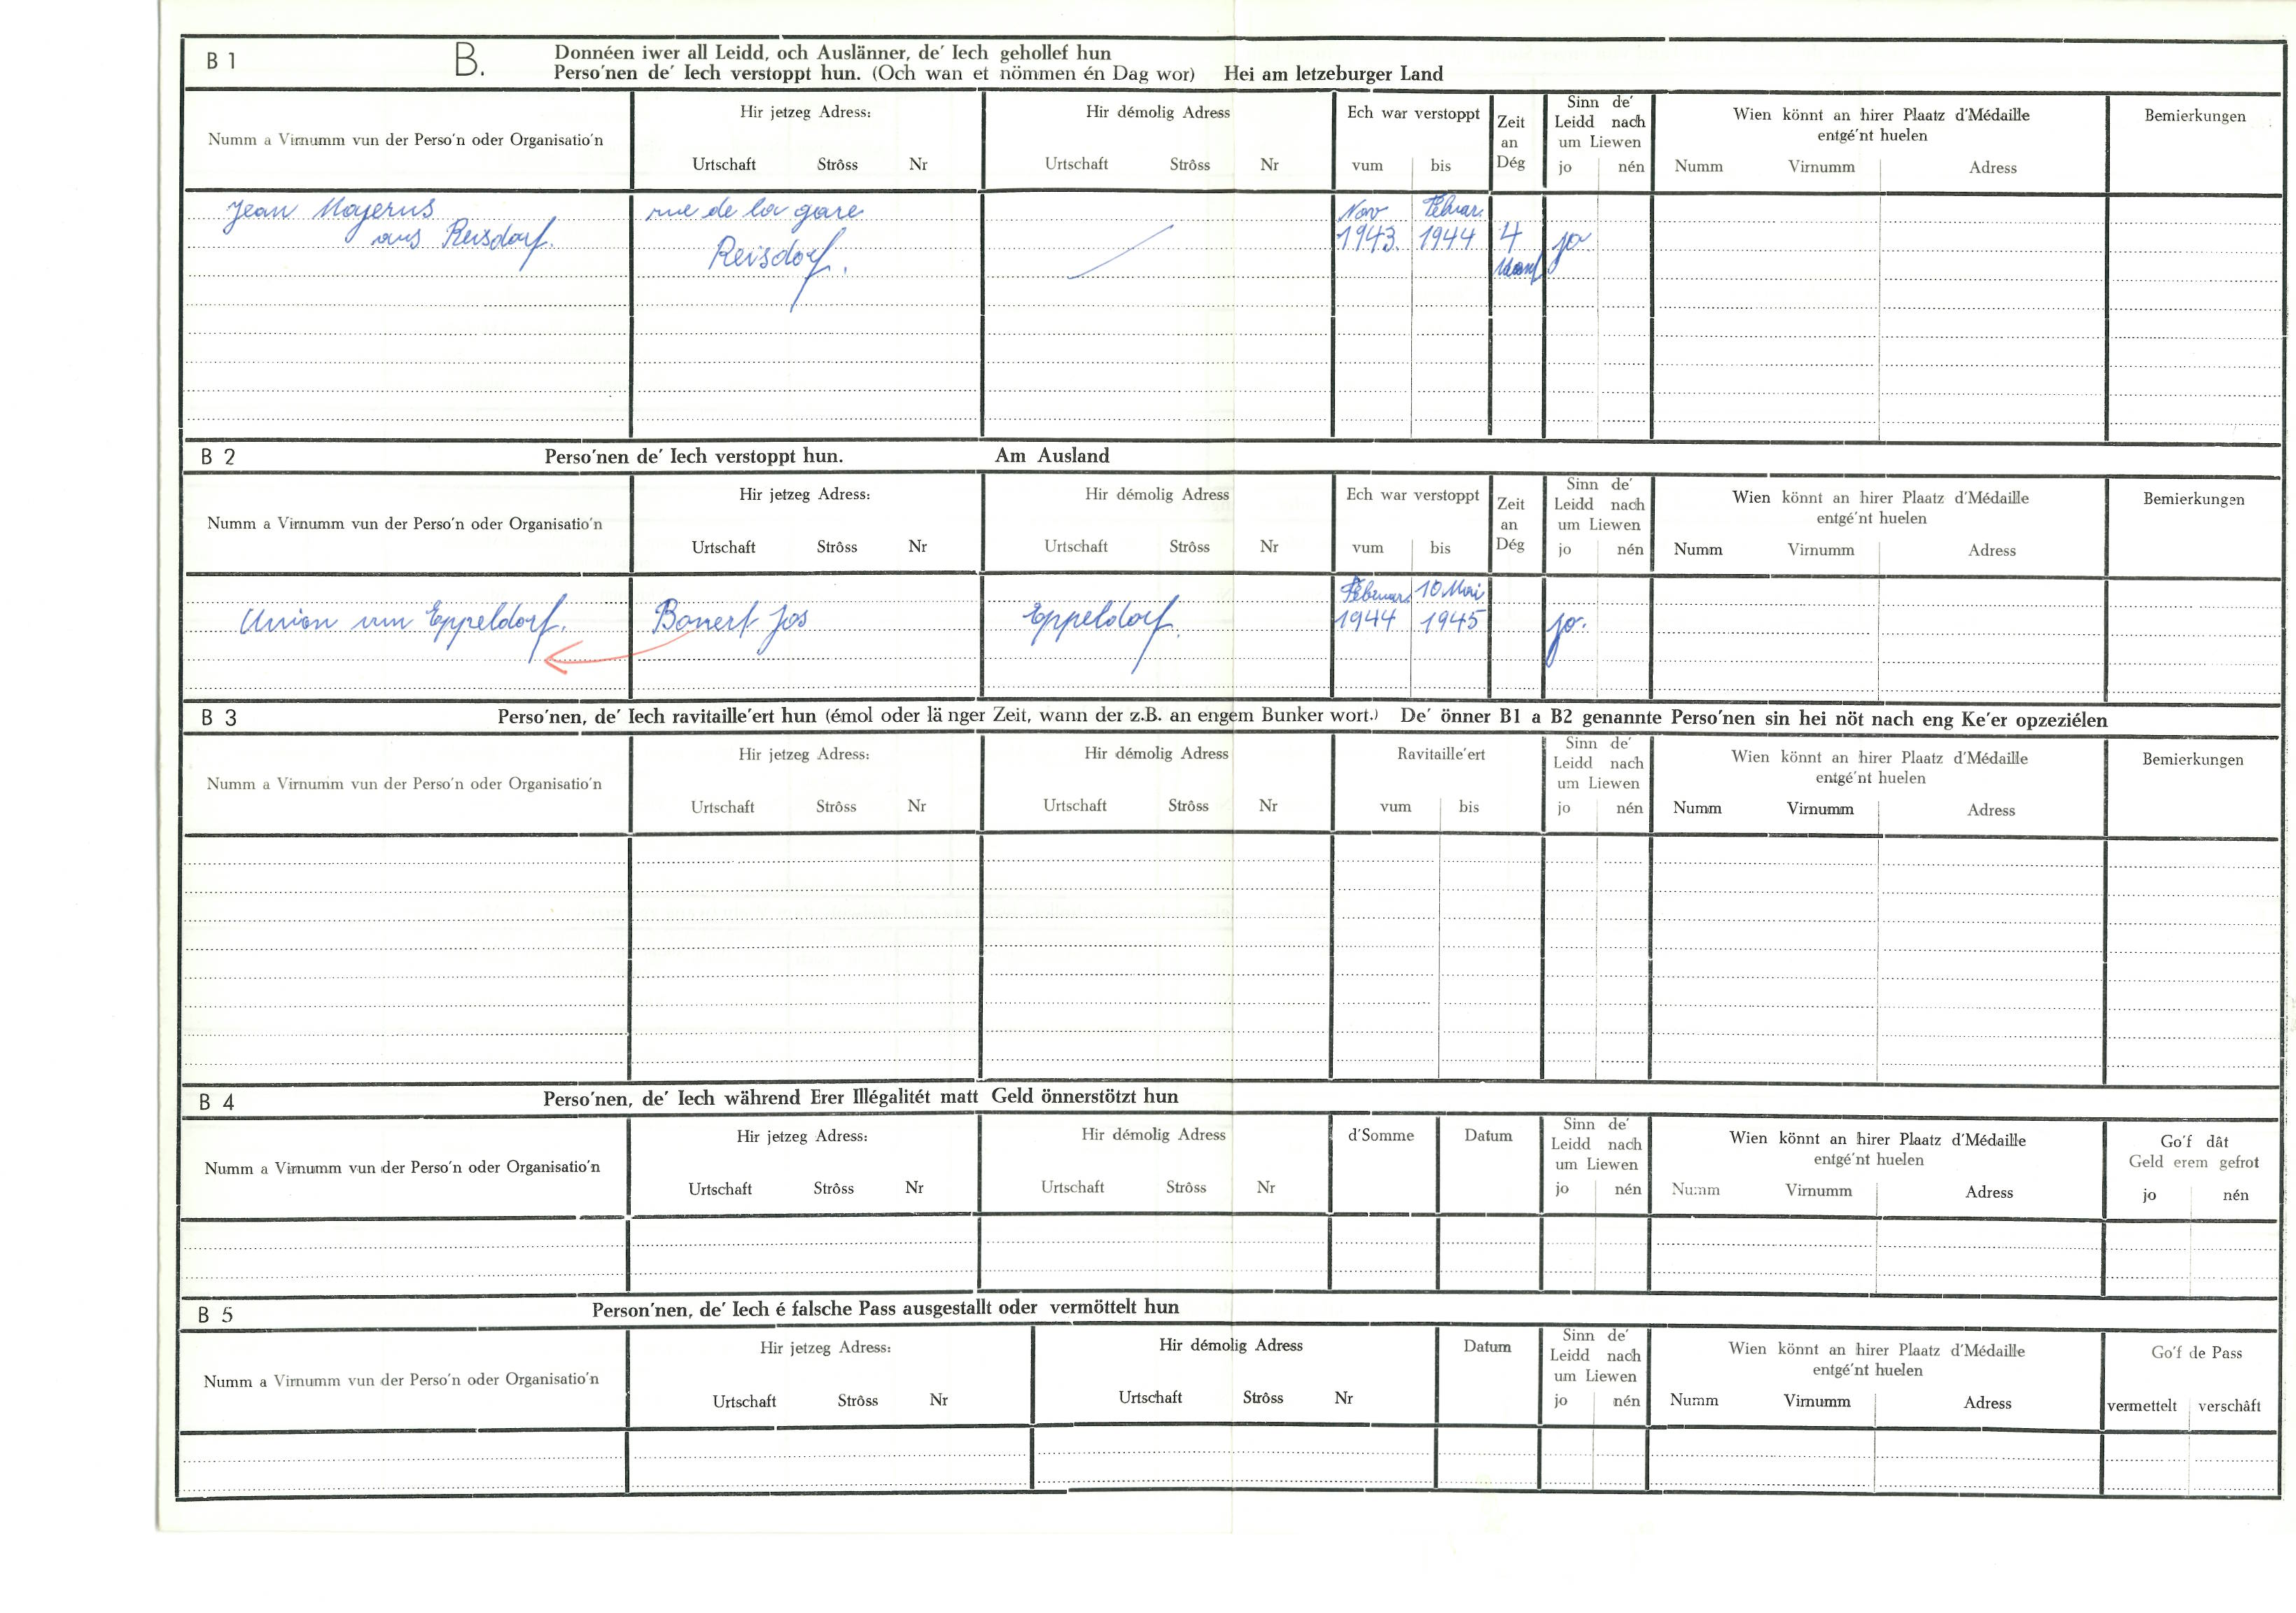 B 1
B.
Donnéen iwer all Leidd, och Auslänner, de' Iech gehollef hun
Perso'nen de' Iech verstoppt hun. (Och wan et nömmen én Dag wor) Hei am letzeburger Land
Numm a Virnumm vun der Perso'n oder Organisatio'n
Hir jetzeg Adress:
Urtschaft Strôss Nr
Hir démolig Adress
Urtschaft Strôss Nr
Ech war verstoppt
vum bis
Zeit
an
Dég
Sinn de'
Leidd nach
um Liewen
jo nén
Wien könnt an hirer Plaatz d'Médaille
entgé'nt huelen
Numm Virnumm Adress
Bemierkungen
Jean Mayerus
aus Reisdorf.
rue de la gare
Reisdorf.
Nov
1943
Februar.
1944
4
jo
B 2
Perso'nen de' Iech verstoppt hun. Am Ausland
Numm a Virnumm vun der Perso'n oder Organisatio'n
Hir jetzeg Adress:
Urtschaft Strôss Nr
Hir démolig Adress
Urtschaft Strôss Nr
Ech war verstoppt
vum bis
Zeit
an
Dég
Sinn de'
Leidd nach
um Liewen
jo nén
Wien könnt an hirer Plaatz d'Médaille
entgé'nt huelen
Numm Virnumm Adress
Bemierkungen
Union vun Eppeldorf.
Bonert Jos
Eppeldorf.
Februar
1944
10 Mai
1945
jo.
B 3
Perso'nen, de' Iech ravitaille'ert hun (émol oder lä nger Zeit, wann der z.B. an engem Bunker wort.) De' önner B1 a B2 genannte Perso'nen sin hei nöt nach eng Ke'er opzeziélen
Numm a Virnumm vun der Perso'n oder Organisatio'n
Hir jetzeg Adress:
Urtschaft Strôss Nr
Hir démolig Adress
Urtschaft Strôss Nr
Ravitaille'ert
vum bis
Sinn de'
Leidd nach
um Liewen
jo nén
Wien könnt an hirer Plaatz d'Médaille
entgé'nt huelen
Numm Virnumm Adress
Bemierkungen
B 4
Perso'nen, de' Iech während Erer Illégalitét matt Geld önnerstötzt hun
Numm a Virnumm vun der Perso'n oder Organisatio'n
Hir jetzeg Adress:
Urtschaft Strôss Nr
Hir démolig Adress
Urtschaft Strôss Nr
d'Somme
Datum
Sinn de'
Leidd nach
um Liewen
jo nén
Wien könnt an hirer Plaatz d'Médaille
entgé'nt huelen
Numm Virnumm Adress
Go'f dât
Geld erem gefrot
jo nén
B 5
Person'nen, de' Iech é falsche Pass ausgestallt oder vermöttelt hun
Numm a Virnumm vun der Perso'n oder Organisatio'n
Hir jetzeg Adress:
Urtschaft Strôss Nr
Hir démolig Adress
Urtschaft Strôss Nr
Datum
Sinn de'
Leidd nach
um Liewen
jo nén
Wien könnt an hirer Plaatz d'Médaille
entgé'nt huelen
Numm Virnumm Adress
Go'f de Pass
vermettelt verschâft